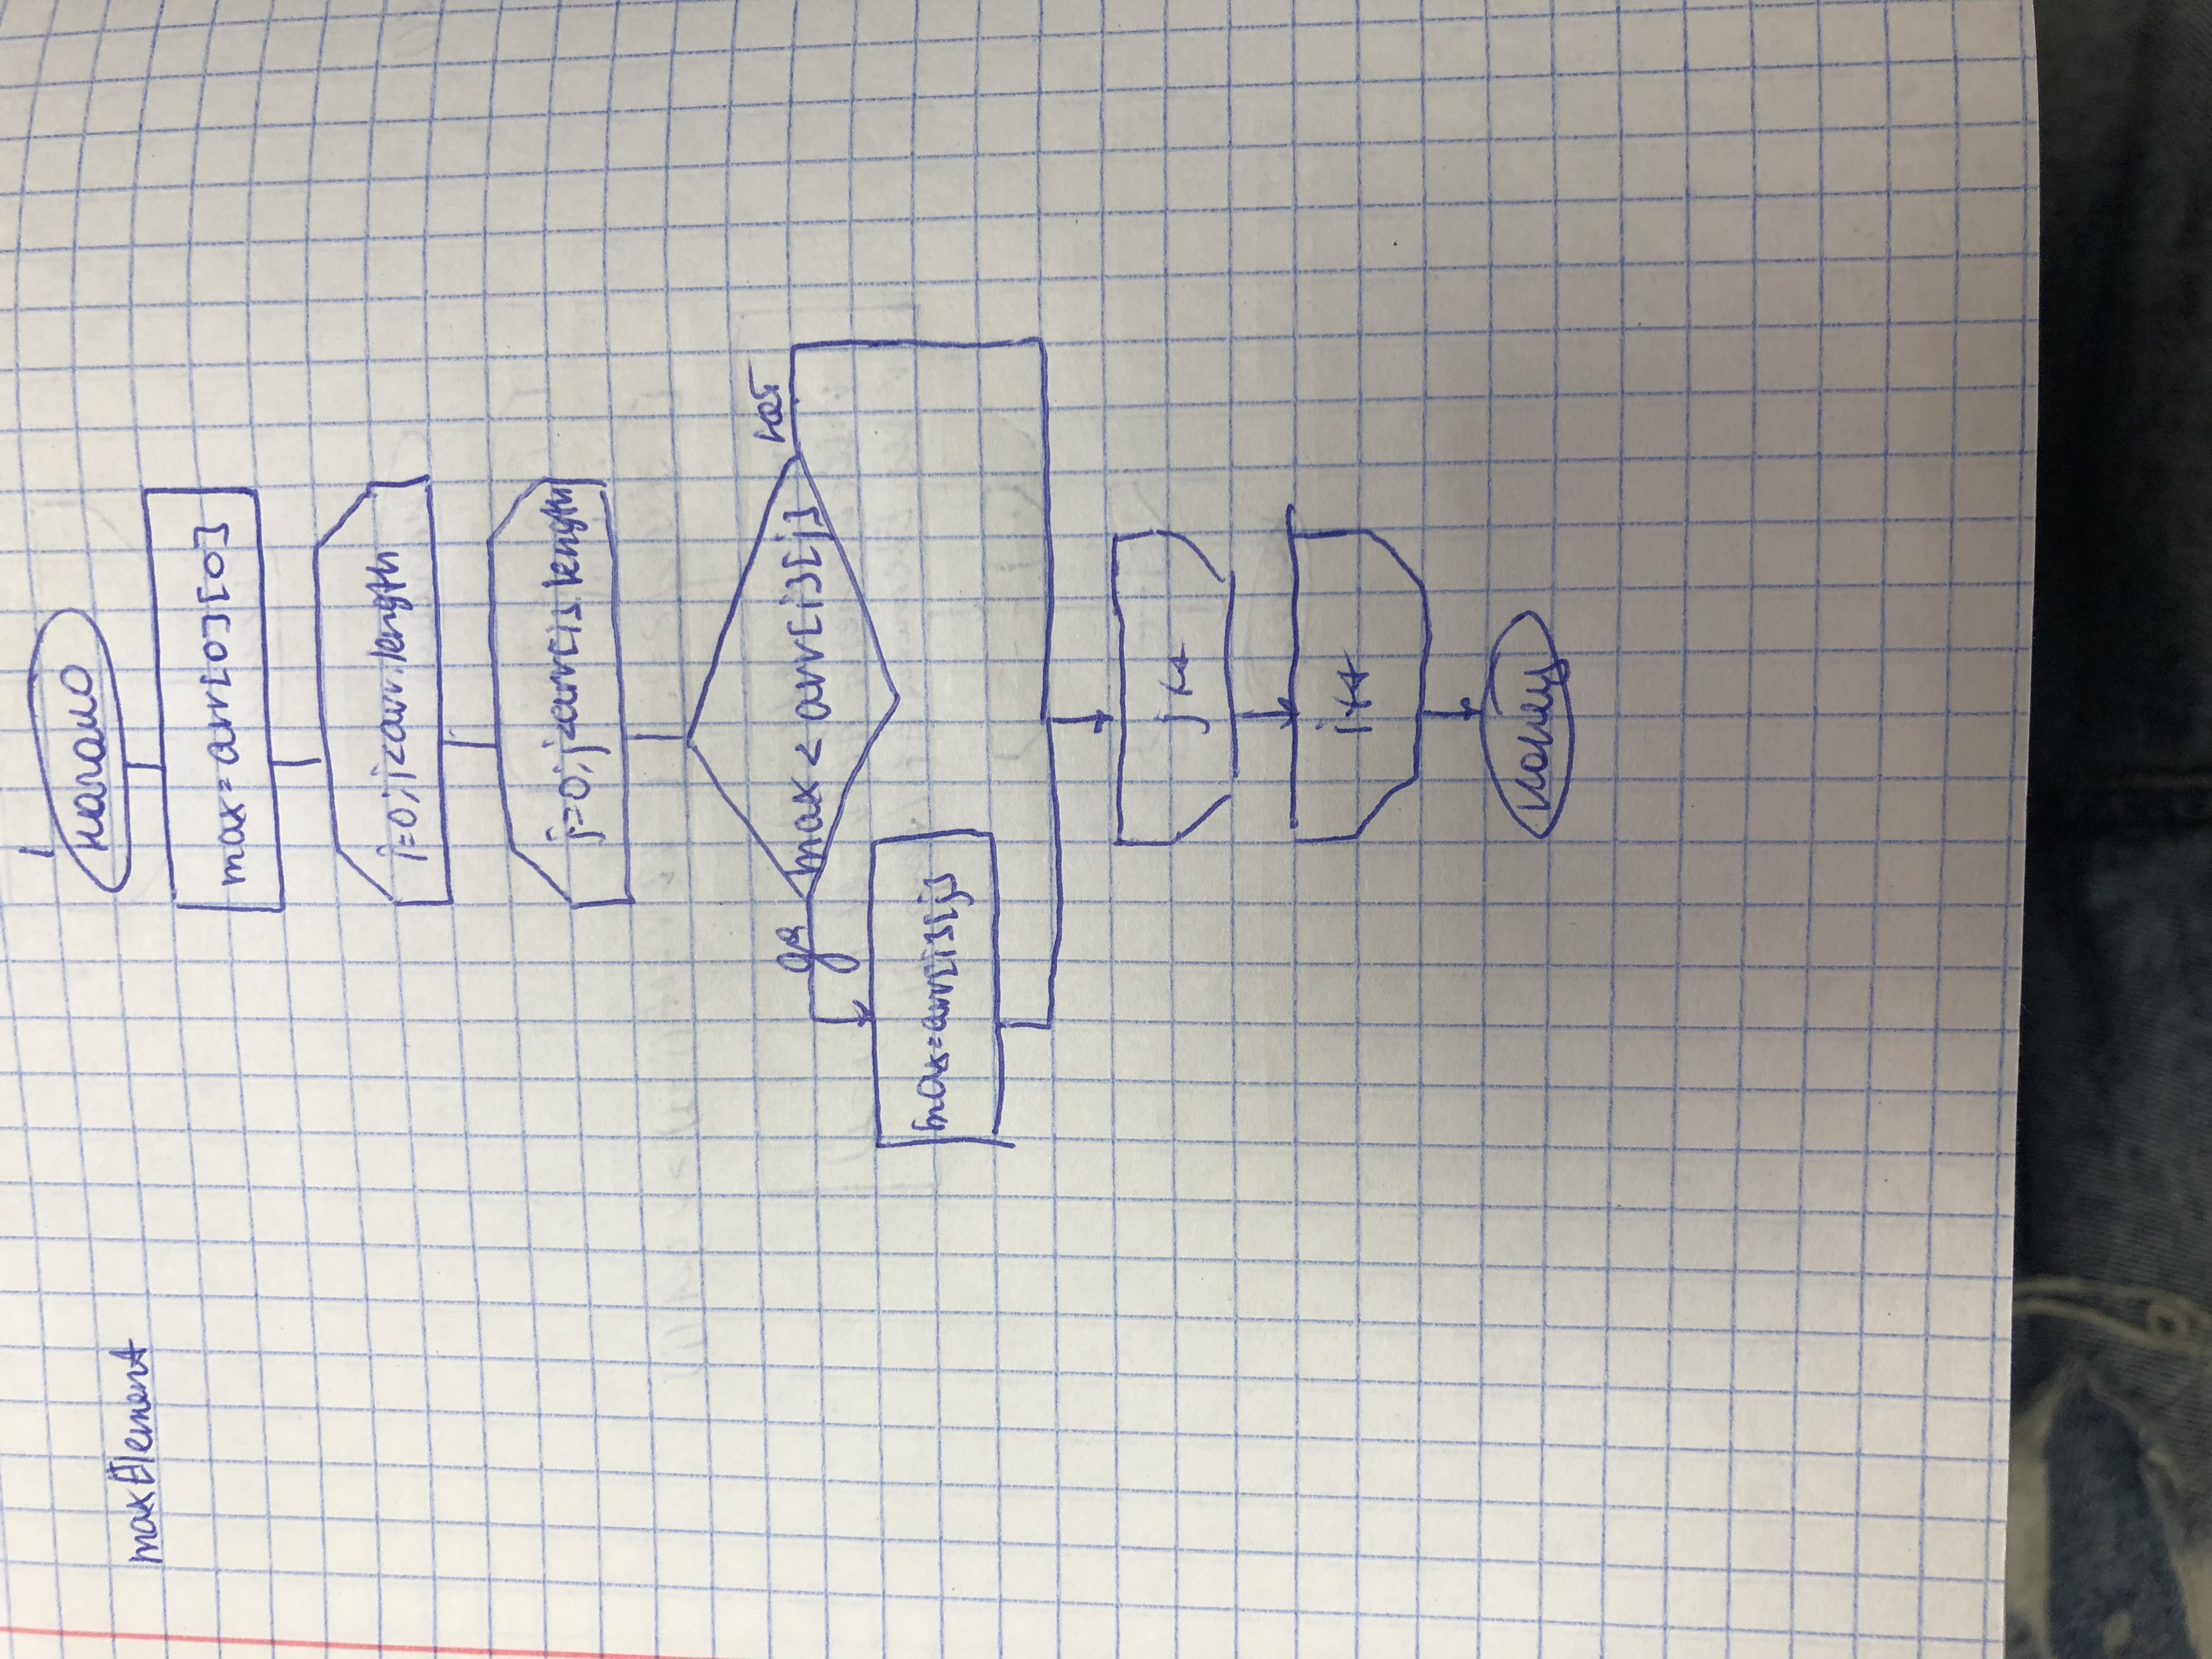 maxElement
начало
max=arr[0][0]
i=0; i<arr.length
j=0; j<arr[i].length
max < arr[i][j]
да
нет
max=arr[i][j]
j++
i++
конец